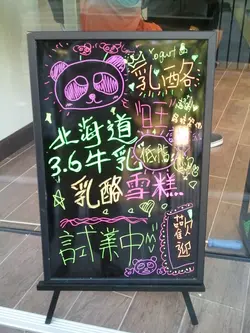 Yogurt
乳酪
旺
北海道
3.6牛乳
低脂
乳酪
雪糕
試業中
歡迎